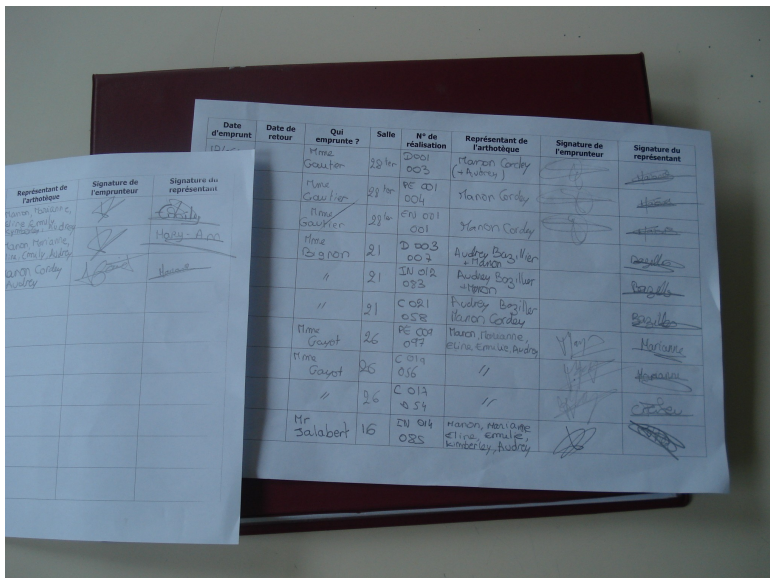 Représentant de
l'arthotèque
Signature de
l'emprunteur
Signature du
représentant
Manon, Marianne,
Eline, Emilie
Kimberley, Audrey
Mary-Am
Manon Marianne,
Emilie, Audrey
Manon Cordey
Audrey
Date
d'emprunt
Date de
retour
Qui
emprunte ?
Salle
N° de
réalisation
Représentant de
l'arthotèque
Signature de
l'emprunteur
Signature du
représentant
Mme
Gautier
28 ter
D001
003
Manon Cordey
(+Audrey)
Mme
Gautier
28 ter
PE 001
004
Manon Cordey
Mme
Gautier
28 ter
EN 001
001
Manon Cordey
Mme
Bignon
21
D 003
007
Audrey Bazillier
+ Manon
Bazille
//
21
IN 012
083
Audrey Bazillier
+ Manon
Bazille
//
21
C 021
058
Audrey Bazillier
Manon Cordey
Bazille
Mme
Gayot
26
PE 009
097
Manon, Marianne,
Eline, Emilie, Audrey
Marianne
Mme
Gayot
26
C 019
056
//
//
26
C 017
054
//
Mr
Jalabert
16
IN 014
085
Manon, Marianne
Eline, Emilie,
Kimberley, Audrey